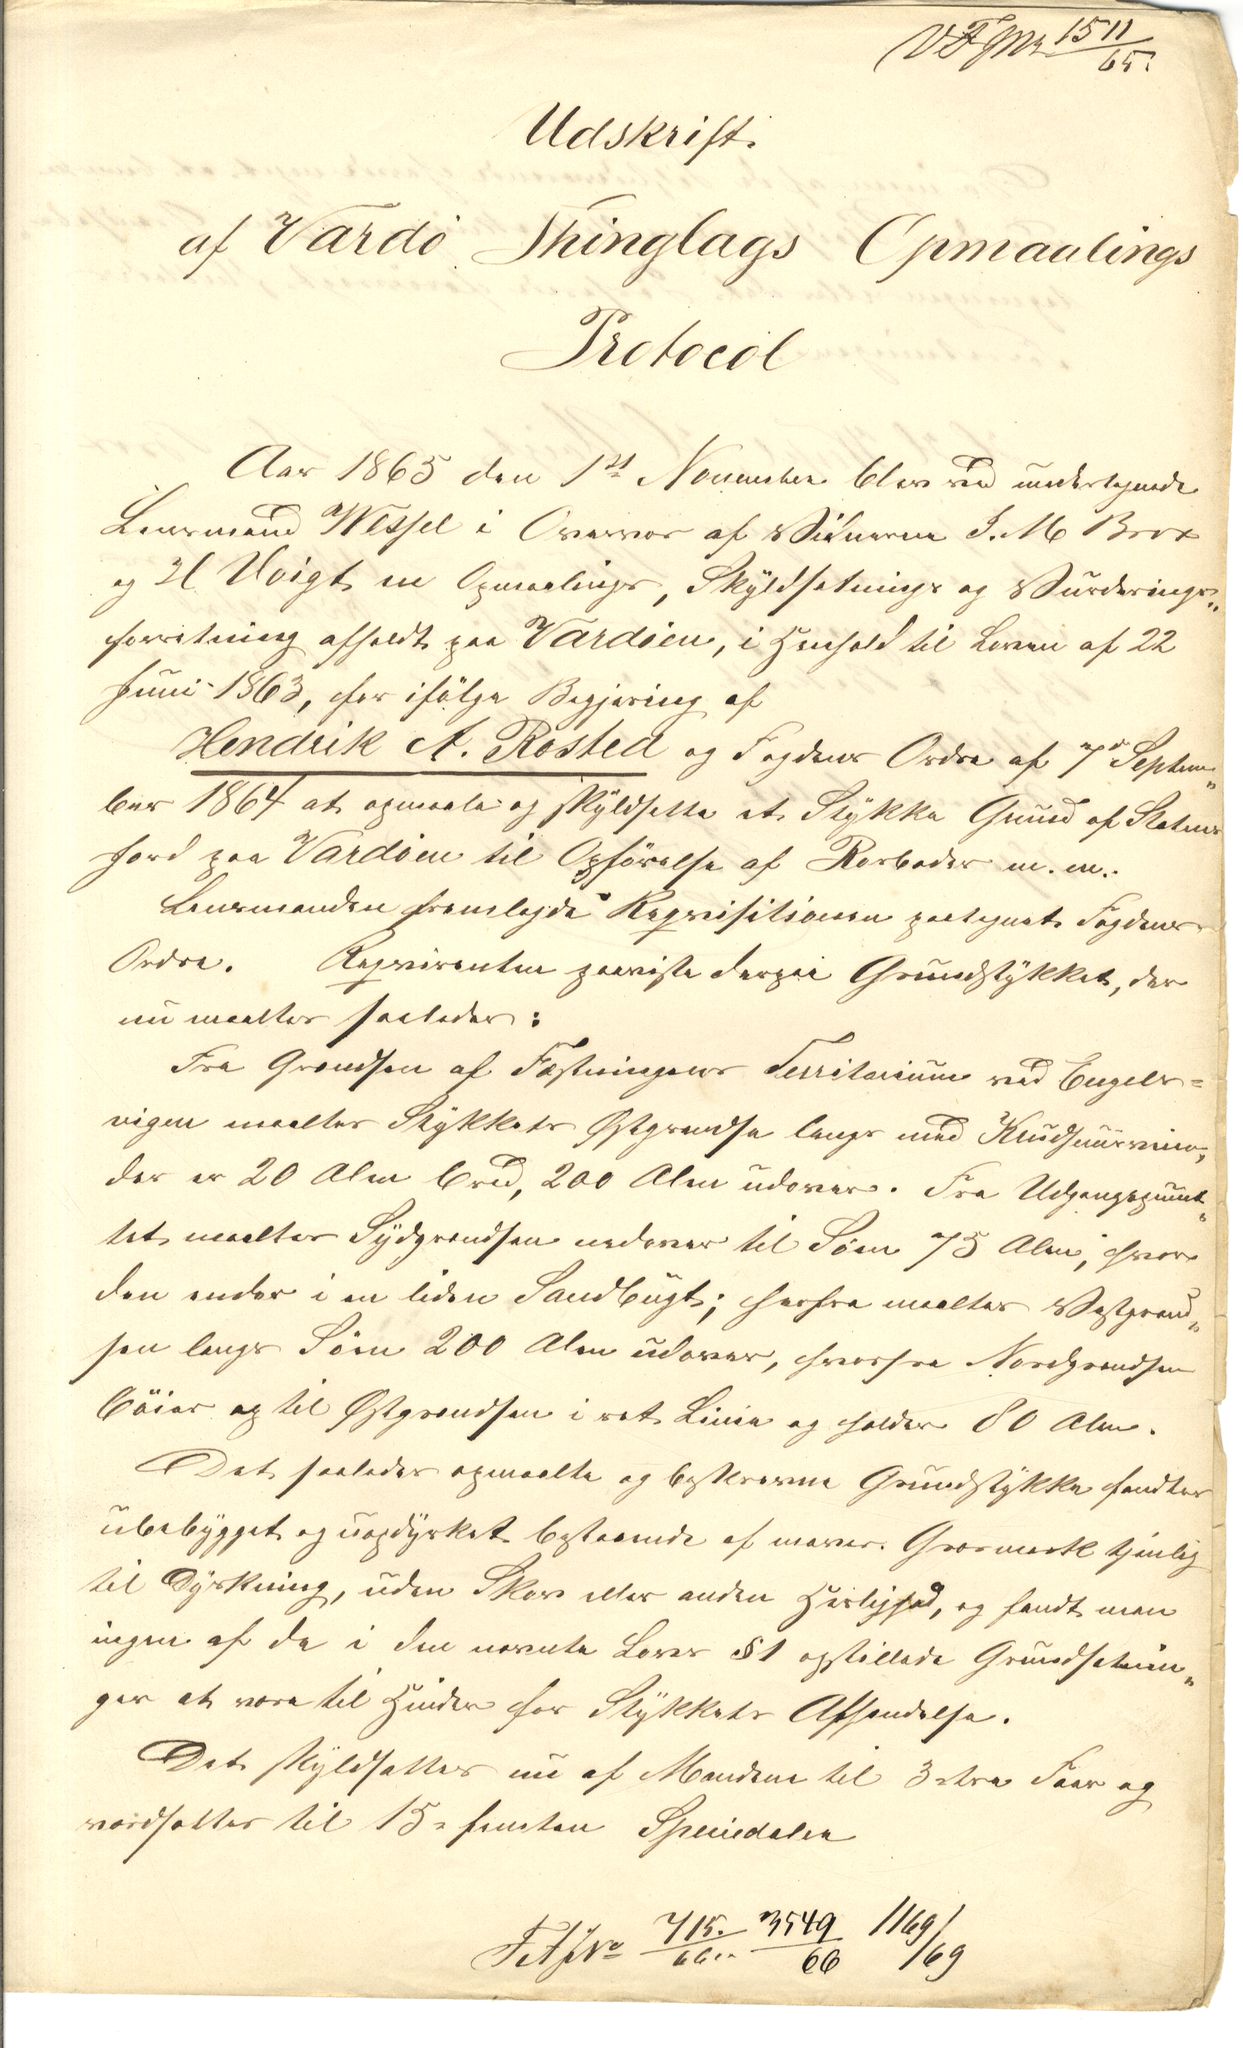 VF JNr 1511/65.
Udskrift
af Vardö Thinglags Opmaalings
Protocol
Aar 1865 den 1st November blev ved undertegnede
Lensmand Wessel i Overvær af Vidnerne J. M Brox
og H Voigt en Opmaalings, Skyldsætnings og Vurderings„
forretning afholdt paa Vardöen, i Henhold til Loven af 22
Juni 1863, for ifölge Begjæring af
Hendrik A. Rosted og Fogdens Ordre af 7d Septem„
ber 1864 at opmaale og skyldsætte et Stykke Grund af Statens
Jord paa Vardöen til Opförelse af Rorboder m. m.
Lensmanden fremlagde Reqvisitionen paategnet Fogdens
Ordre. Reqvirenten paaviste derpaa Grundstykket, der
nu maaltes saaledes:
Fra Grændsen af Fæstningens Territorium ved Engels-
vigen maaltes Stykkets Østgrændse langs med
der er 20 Alen bred, 200 Alen udover. Fra Udgangspunk„
tet maaltes Sydgrændsen nedover til Söen 75 Alen, hvor
den ender i en liden Sandbugt; herfra maaltes Vestgrænd„
sen langs Söen 200 Alen udover, hvorfra Nordgrændsen
böier op til Østgrændsen i ret Linie og holder 80 Alen.
Det saaledes opmaalte og beskrevne Grundstykke fandtes
ubebygget og uopdyrket bestaaende af mager Græsmark tjenlig
til Dyrkning, uden Skov eller anden Herlighed, og fandt man
ingen af de i den nævnte Lovs §1 opstillede Grundsætnin„
ger at være til Hinder for Stykkets Afhændelse.
Det skyldsattes nu af Mændene til 3 tre Faar og
værdsattes til 15 femten Speciedaler
F A JNo 715./66.. 3549/66 1169/69